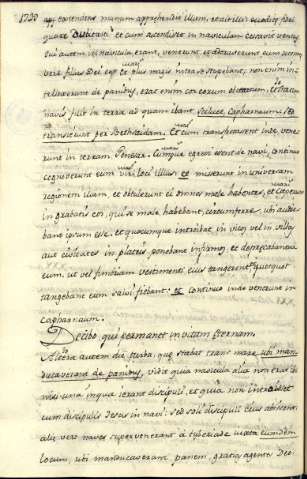 1730
extendens manum apprehendit illum, et ait illi: modicę fidei
quare dubitasti et cum ascendisset in naviculam cessavit ventus
Qui autem in navicula erant, venerunt et adoraverunt eum
vere filius Dei es et plus magis intra se stupebant, non enim in
tellexerunt de panibus, erat enim cor eorum obcecatum, et statim
navis fuit in terra ad quam ibant scilicet Capharnaum
transierunt per Bethsaidam. Et cum transfretassent inde vene
runt in terram Cumque egressi essent de navi, continuo
cognoverunt eum viri loci illius, et miserunt in universam
regionem illam, et obtulerunt ei omnes male habentes, et
in grabatis eos, qui se male habebant, circumferre, ubi audie
bant ipsum esse. et quocumque intrabat in vicos vel in villas
aut civitates in plateis ponebant infirmos, et deprecabantur
eum, ut vel fimbriam vestimenti eius tangerent, et quotquot
tangebant eum salvi fiebant. et continuo inde venerunt in
Capharnaum.
De cibo, qui permanet in vitam eternam.
Altera autem die turba, quę stabat trans mare ubi man
ducaverant de panibus, vidit quia navicula alia non erat ibi
nisi una in qua ierant discipuli, et quia non introisset
cum discipulis Iesus in navi: sed soli discipuli eius abiissent
alię vero naves supervenerunt a tyberiade iuxta eumdem
locum, ubi manducaverant panem, gratias agente Deo